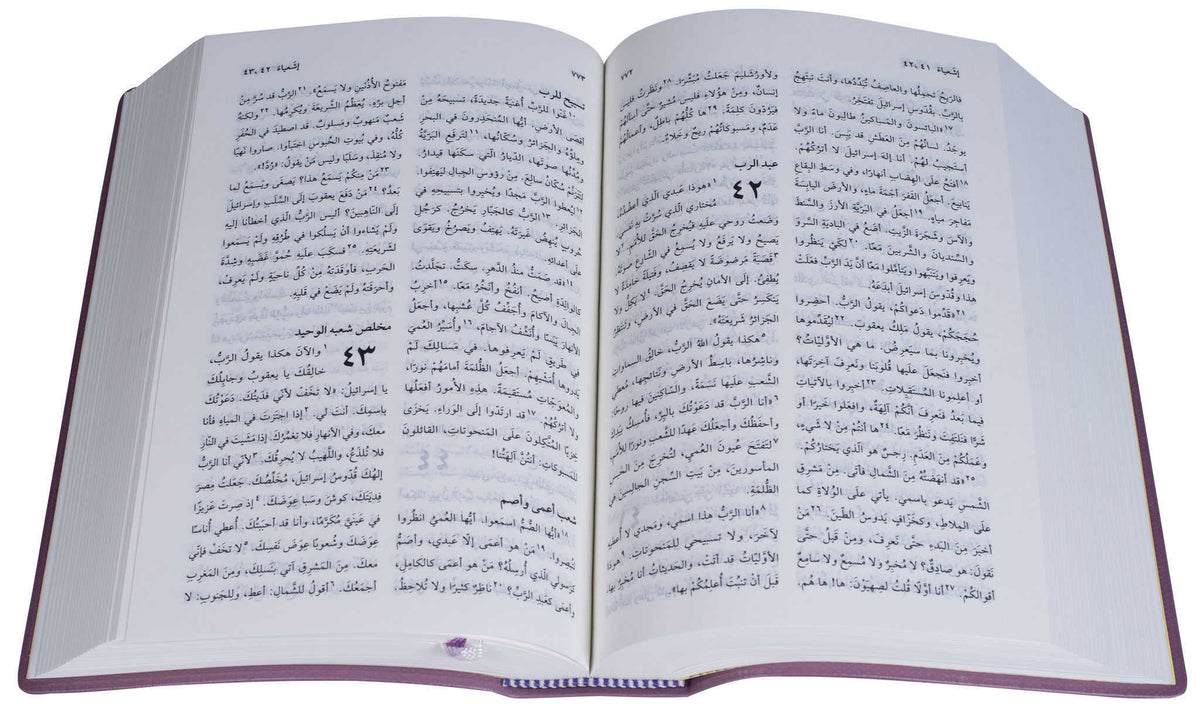 إشَعياءَ ٤١، ٤٢
٧٧٢
فالرّيحُ تحمِلُها والعاصِفُ تُبَدِّدُها، وأنتَ تبتَهِجُ
بالرَّبِّ. بقُدّوسِ إسرائيلَ تفتَخِرُ.
١٧«البائسونَ والمَساكينُ طالِبونَ ماءً ولا
يوجَدُ. لسانُهُمْ مِنَ العَطَشِ قد يَبِسَ. أنا الرَّبُّ
أستَجيبُ لهُمْ. أنا إلهَ إسرائيلَ لا أترُكُهُمْ.
١٨أفتَحُ علَى الهِضابِ أنهارًا، وفي وسَطِ البِقاعِ
يَنابيعَ. أجعَلُ القَفرَ أجَمَةَ ماءٍ، والأرضَ اليابِسَةَ
مَفاجِرَ مياهٍ. ١٩أجعَلُ في البَرّيَّةِ الأرزَ والسَّنطَ
والآسَ وشَجَرَةَ الزَّيتِ. أضَعُ في الباديَةِ السَّروَ
والسِّنديانَ والشَّربينَ مَعًا. ٢٠لكَيْ يَنظُروا
ويَعرِفوا ويَتَنَبَّهوا ويَتأمَّلوا مَعًا أنَّ يَدَ الرَّبِّ فعَلَتْ
هذا وقُدّوسَ إسرائيلَ أبدَعَهُ.
٢١«قَدِّموا دَعواكُمْ، يقولُ الرَّبُّ. أحضِروا
حُجَجَكُمْ، يقولُ مَلِكُ يعقوبَ. ٢٢ليُقَدِّموها
ويُخبِرونا بما سيَعرِضُ. ما هي الأوَّليّاتُ؟
أخبِروا فنَجعَلَ علَيها قُلوبَنا ونَعرِفَ آخِرَتَها،
أو أعلِمونا المُستَقبِلاتِ. ٢٣أخبِروا بالآتياتِ
فيما بَعدُ فنَعرِفَ أنَّكُمْ آلِهَةٌ، وافعَلوا خَيرًا أو
شَرًّا فنَلتَفِتَ ونَنظُرَ مَعًا. ٢٤ها أنتُمْ مِنْ لا شَيءٍ،
وعَمَلُكُمْ مِنَ العَدَمِ. رِجسٌ هو الّذي يَختارُكُمْ.
٢٥«قد أنهَضتُهُ مِنَ الشِّمالِ فأتَى. مِنْ مَشرِقِ
الشَّمسِ يَدعو باسمي. يأتي علَى الوُلاةِ كما
علَى المِلاطِ، وكخَزّافٍ يَدوسُ الطّينَ. ٢٦مَنْ
أخبَرَ مِنَ البَدءِ حتَّى نَعرِفَ، ومِنْ قَبلُ حتَّى
نَقولَ: هو صادِقٌ؟ لا مُخبِرٌ ولا مُسمِعٌ ولا سامِعٌ
أقوالكُمْ. ٢٧أنا أوَّلًا قُلتُ لصِهيَوْنَ: ها! ها هُم.
ولأورُشَليمَ جَعَلتُ مُبَشِّرًا. ٢٨ونَظَرتُ فليس
إنسانٌ، ومِنْ هؤُلاءِ فليس مُشيرٌ حتَّى أسألهُمْ
فيَرُدّونَ كلِمَةً. ٢٩ها كُلُّهُمْ باطِلٌ، وأعمالُهُمْ
عَدَمٌ، ومَسبوكاتُهُمْ ريحٌ وخَلاءٌ.
عبد الرب
٤٢ ١«هوذا عَبدي الّذي أعضُدُهُ،
مُختاري الّذي سُرَّتْ بهِ نَفسي.
وضَعتُ روحي علَيهِ فيُخرِجُ الحَقَّ للأُمَمِ. ٢لا
يَصيحُ ولا يَرفَعُ ولا يُسمِعُ في الشّارِعِ صوتَهُ.
٣قَصَبَةً مَرضوضَةً لا يَقصِفُ، وفَتيلَةً خامِدَةً لا
يُطفِئُ. إلَى الأمانِ يُخرِجُ الحَقَّ. ٤لا يَكِلُّ ولا
يَنكَسِرُ حتَّى يَضَعَ الحَقَّ في الأرضِ، وتَنتَظِرُ
الجَزائرُ شَريعَتَهُ».
٥هكذا يقولُ اللهُ الرَّبُّ، خالِقُ السماواتِ
وناشِرُها، باسِطُ الأرضِ ونَتائجِها، مُعطي
الشَّعبِ علَيها نَسَمَةً، والسّاكِنينَ فيها روحًا:
٦«أنا الرَّبَّ قد دَعَوْتُكَ بالبِرِّ، فأُمسِكُ بيَدِكَ
وأحفَظُكَ وأجعَلُكَ عَهدًا للشَّعبِ ونورًا للأُمَمِ،
٧لتَفتَحَ عُيونَ العُميِ، لتُخرِجَ مِنَ الحَبسِ
المأسورينَ، مِنْ بَيتِ السِّجنِ الجالِسينَ في
الظُّلمَةِ.
٨«أنا الرَّبُّ هذا اسمي، ومَجدي لا أُعطيهِ
لآخَرَ، ولا تسبيحي للمَنحوتاتِ. ٩هوذا
الأوَّليّاتُ قد أتَتْ، والحَديثاتُ أنا مُخبِرٌ بها.
قَبلَ أنْ تنبُتَ أُعلِمُكُمْ بها».
٧٧٣
إشَعياءَ ٤٢، ٤٣
تسبيح للرب
١٠غَنّوا للرَّبِّ أُغنيَّةً جديدَةً، تسبيحَهُ مِنْ
أقصَى الأرضِ. أيُّها المُنحَدِرونَ في البحرِ
ومِلؤُهُ والجَزائرُ وسُكّانُها، ١١لتَرفَعِ البَرّيَّةُ
ومُدُنُها صوتَها، الدّيارُ الّتي سكَنَها قيدارُ.
لتَتَرَنَّمْ سُكّانُ سالِعَ. مِنْ رؤوسِ الجِبالِ ليَهتِفوا.
١٢ليُعطوا الرَّبَّ مَجدًا ويُخبِروا بتَسبيحِهِ في
الجَزائرِ. ١٣الرَّبُّ كالجَبّارِ يَخرُجُ. كرَجُلِ
حُروبٍ يُنهِضُ غَيرَتَهُ. يَهتِفُ ويَصرُخُ ويَقوَى
علَى أعدائهِ.
١٤قد صَمَتُّ منذُ الدَّهرِ. سكَتُّ. تجَلَّدتُ.
كالوالِدَةِ أصيحُ. أنفُخُ وأنخُرُ مَعًا. ١٥أخرِبُ
الجِبالَ والآكامَ وأُجَفِّفُ كُلَّ عُشبِها، وأجعَلُ
الأنهارَ يَبَسًا وأُنَشِّفُ الآجامَ، ١٦وأُسَيِّرُ العُميَ
في طريقٍ لَمْ يَعرِفوها. في مَسالِكَ لَمْ
يَدروها أُمَشّيهِمْ. أجعَلُ الظُّلمَةَ أمامَهُمْ نورًا،
والمُعوَجّاتِ مُستَقيمَةً. هذِهِ الأُمورُ أفعَلُها
ولا أترُكُهُمْ. ١٧قد ارتَدّوا إلَى الوَراءِ. يَخزَى
خِزيًا المُتَّكِلونَ علَى المَنحوتاتِ، القائلونَ
للمَسبوكاتِ: أنتُنَّ آلِهَتُنا!
شعب أعمى وأصم
١٨أيُّها الصُّمُّ اسمَعوا. أيُّها العُميُ انظُروا
لتُبصِروا. ١٩مَنْ هو أعمَى إلّا عَبدي، وأصَمُّ
كرَسولي الّذي أُرسِلُهُ؟ مَنْ هو أعمَى كالكامِلِ،
وأعمَى كعَبدِ الرَّبِّ؟ ٢٠ناظِرٌ كثيرًا ولا تُلاحِظُ.
مَفتوحُ الأُذُنَينِ ولا يَسمَعُ». ٢١الرَّبُّ قد سُرَّ مِنْ
أجلِ برِّهِ. يُعَظِّمُ الشَّريعَةَ ويُكرِمُها. ٢٢ولكنهُ
شَعبٌ مَنهوبٌ ومَسلوبٌ. قد اصطيدَ في الحُفَرِ
كُلُّهُ، وفي بيوتِ الحُبوسِ اختَبأوا. صاروا نَهبًا
ولا مُنقِذَ، وسَلَبًا وليس مَنْ يقولُ: «رُدَّ!».
٢٣مَنْ مِنكُمْ يَسمَعُ هذا؟ يَصغَى ويَسمَعُ لما
بَعدُ؟ ٢٤مَنْ دَفَعَ يعقوبَ إلَى السَّلَبِ وإسرائيلَ
إلَى النّاهِبينَ؟ أليس الرَّبُّ الّذي أخطأنا إليهِ
ولَمْ يَشاءوا أنْ يَسلُكوا في طُرُقِهِ ولَمْ يَسمَعوا
لشَريعَتِهِ. ٢٥فسَكَبَ علَيهِ حُموَّ غَضَبِهِ وشِدَّةَ
الحَربِ، فأوقَدَتهُ مِنْ كُلِّ ناحيَةٍ ولَمْ يَعرِفْ،
وأحرَقَتهُ ولَمْ يَضَعْ في قَلبِهِ.
مخلص شعبه الوحيد
٤٣ ١والآنَ هكذا يقولُ الرَّبُّ،
خالِقُكَ يا يعقوبُ وجابِلُكَ
يا إسرائيلُ: «لا تخَفْ لأنّي فدَيتُكَ. دَعَوْتُكَ
باسمِكَ. أنتَ لي. ٢إذا اجتَزتَ في المياهِ فأنا
معكَ، وفي الأنهارِ فلا تغمُرُكَ. إذا مَشَيتَ في النّارِ
فلا تُلذَعُ، واللَّهيبُ لا يُحرِقُكَ. ٣لأنّي أنا الرَّبُّ
إلهُكَ قُدّوسُ إسرائيلَ، مُخَلِّصُكَ. جَعَلتُ مِصرَ
فِديَتَكَ، كوشَ وسَبا عِوَضَكَ. ٤إذ صِرتَ عَزيزًا
في عَينَيَّ مُكَرَّمًا، وأنا قد أحبَبتُكَ. أُعطي أُناسًا
عِوَضَكَ وشُعوبًا عِوَضَ نَفسِكَ. ٥لا تخَفْ فإنّي
معكَ. مِنَ المَشرِقِ آتي بنَسلِكَ، ومِنَ المَغرِبِ
أجمَعُكَ. ٦أقولُ للشِّمالِ: أعطِ، وللجَنوبِ: لا